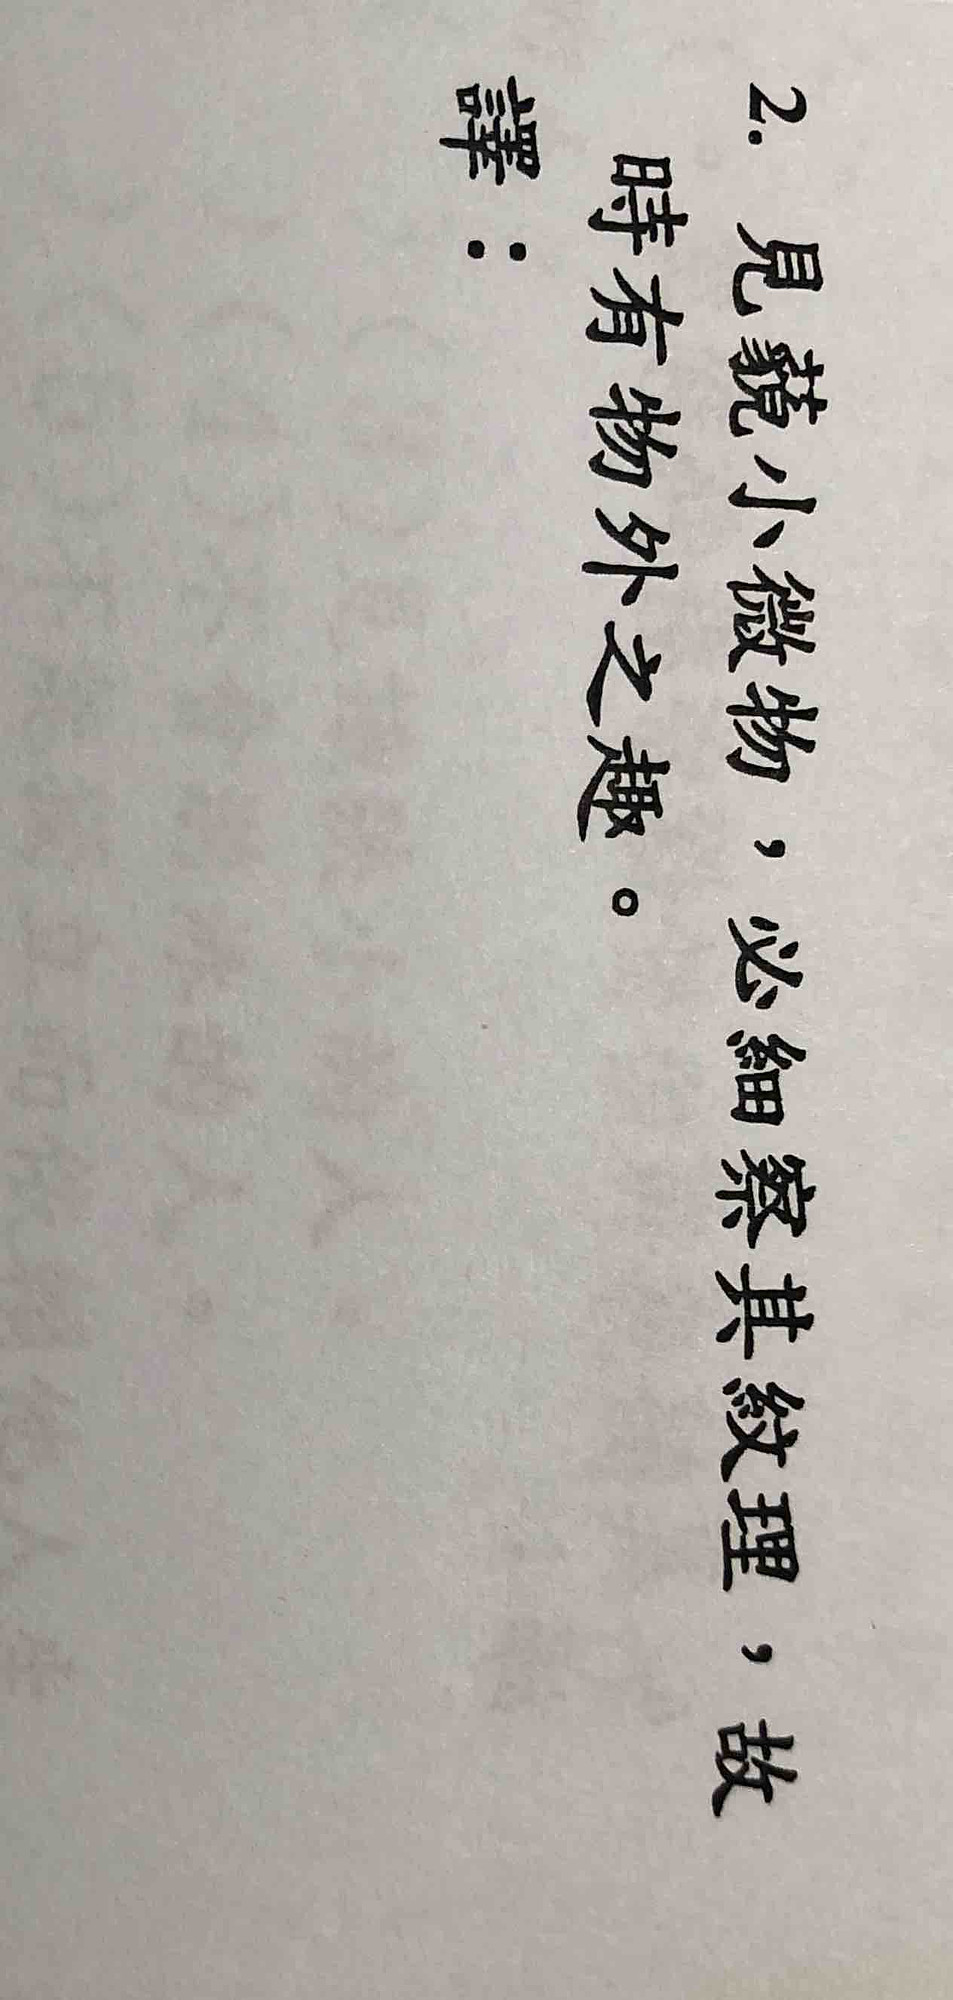 2. 見藐小微物，必細察其紋理，故
時有物外之趣。
譯：